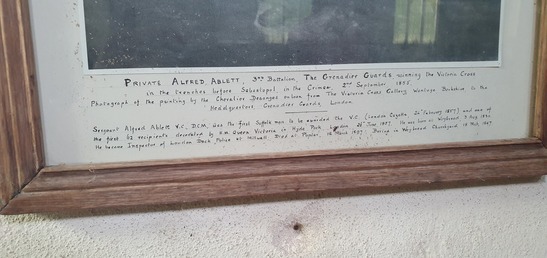 PRIVATE ALFRED ABLETT, 3RD Battalion, The Grenadier Guards winning the Victoria Cross
in the trenches before Sebastopol in the Crimea, 2nd September 1855.
Photograph of the painting by the Chevalier Desanges taken from The Victoria Cross Gallery, Wantage, Berkshire in the
Headquarters, Grenadier Guards, London.
Sergeant Alfred Ablett V.C., D.C.M. was the first Suffolk man to be awarded the V.C. (London Gazette 24th February 1857) and one of
the first 62 recipients decorated by H.M. Queen Victoria in Hyde Park, London 26th June 1857. He was born in Weybread 3 Aug
He became Inspector of London Dock Police at Millwall. Died at Poplar, 1897. Buried in Weybread Churchyard